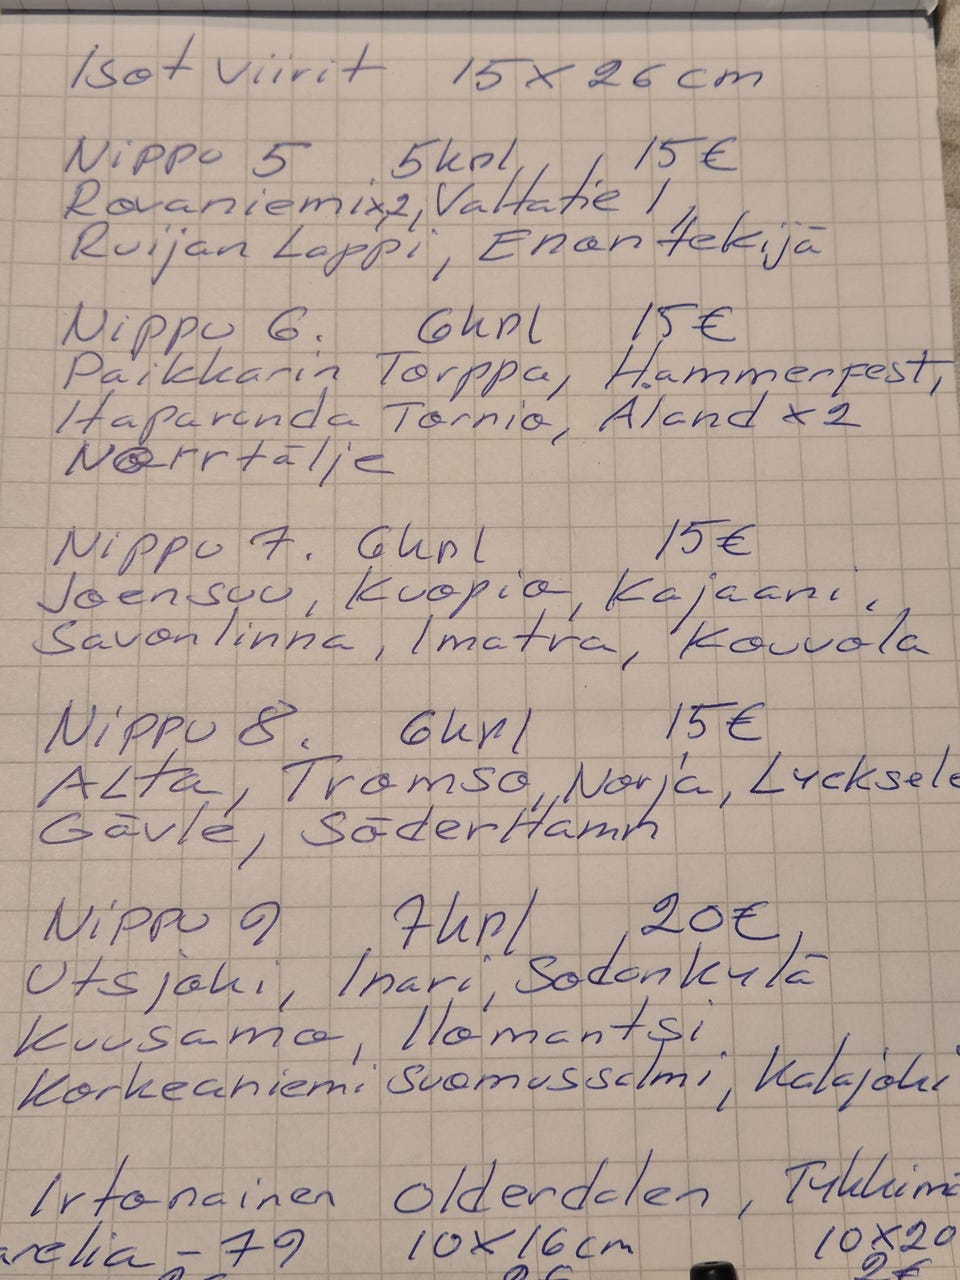 Isot viirit 15 x 26 cm
Nippu 5 5kpl 15€
Rovaniemi x2, Valtatie 1,
Ruijan Lappi, Enontekijä
Nippu 6. 6kpl 15€
Paikkarin Torppa, Hammerfest,
Haparanda Tornio, Åland x 2
Norrtälje
Nippu 7. 6kpl 15€
Joensuu, Kuopio, Kajaani,
Savonlinna, Imatra, Kouvola
Nippu 8. 6kpl 15€
Alta, Tromso, Norja, Lycksele
Gävle, SöderHamn
Nippu 9 7kpl 20€
Utsjoki, Inari, Sodankylä
Kuusamo, Ilomantsi
Korkeaniemi Suomussalmi, Kalajoki
Irtonainen Olderdalen, Tykkimä
arelia - 79 10x16cm 10x20
2€